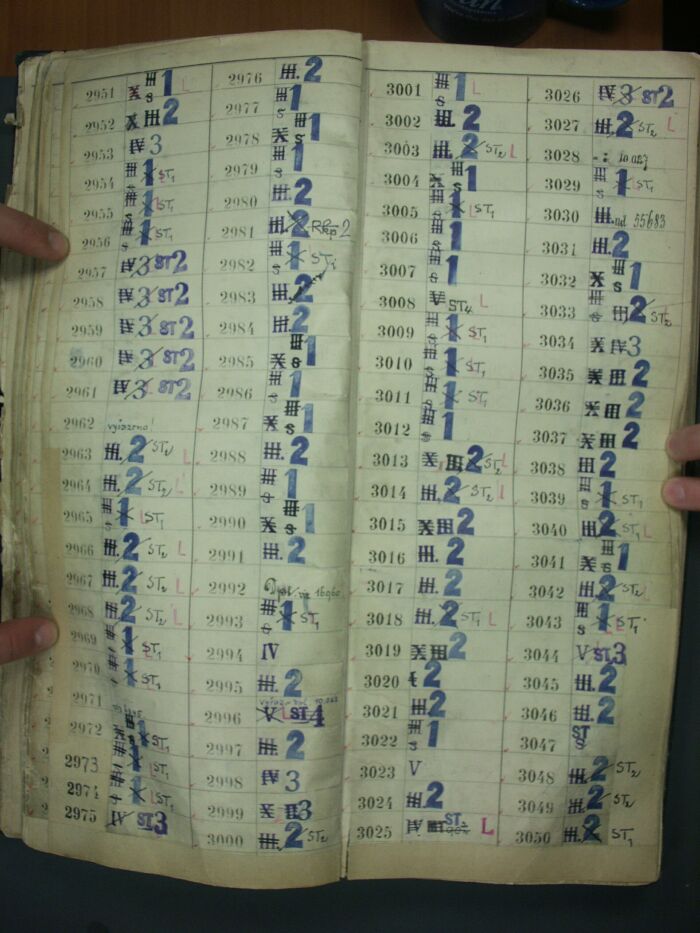 2951 III S 1 L
2952 X III 2
2953 IV 3
2954 III S 1 ST1
2955 III S 1 L ST1
2956 III S 1 ST1
2957 IV 3 ST2
2958 IV 3 ST2
2959 IV 3 ST2
2960 IV 3 ST2
2961 IV 3 ST2
2962
2963 III. 2 ST2 L
2964 III. 2 ST2 L
2965 III S 1 L ST1
2966 III. 2 ST2 L
2967 III. 2 ST2 L
2968 III. 2 ST2 L
2969 1 ST1
2970 1 ST1
2971
2972 1 ST1
2973 1 ST1
2974 1 L ST1
2975 IV ST3
2976 III. 2
2977 III S 1
2978 X III S 1
2979 III S 1
2980 III. 2
2981 III. 2 2
2982 III S 1 ST1
2983 III. 2
2984 III. 2
2985 X III S 1
2986 III S 1
2987 X III S 1
2988 III. 2
2989 III S 1
2990 X III S 1
2991 III. 2
2992 viz 16960
2993 III S 1 ST1
2994 IV
2995 III. 2
2996 V L ST 4
2997 III. 2
2998 IV 3
2999 X II 3
3000 III. 2 ST2
3001 III S 1 L
3002 III. 2
3003 III. 2 ST2 L
3004 X III S 1
3005 III S 1 L ST1
3006 III S 1
3007 III S 1
3008 V ST4 L
3009 III S 1 ST1
3010 III S 1 ST1
3011 III S 1 ST1
3012 III S 1
3013 X III 2 ST2 L
3014 III. 2 ST2 L
3015 X III 2
3016 III. 2
3017 III. 2
3018 III. 2 ST1 L
3019 X III 2
3020 2
3021 III 2
3022 III S 1
3023 V
3024 III. 2
3025 IV III ST2 L
3026 IV 3 ST2
3027 III. 2 ST2 L
3028 10.027
3029 III S 1 ST1
3030 III. nd 55683
3031 III. 2
3032 X III S 1
3033 III S III 2 ST2
3034 X IV 3
3035 X III 2
3036 X III 2
3037 X III 2
3038 III 2
3039 III S 1 ST1
3040 III. 2 ST1 L
3041 X III S 1
3042 III. 2 ST2 L
3043 III S 1 ST1
3044 V ST3
3045 III. 2
3046 III. 2
3047 ST S
3048 III. 2 ST2
3049 III. 2 ST2
3050 III. 2 ST1